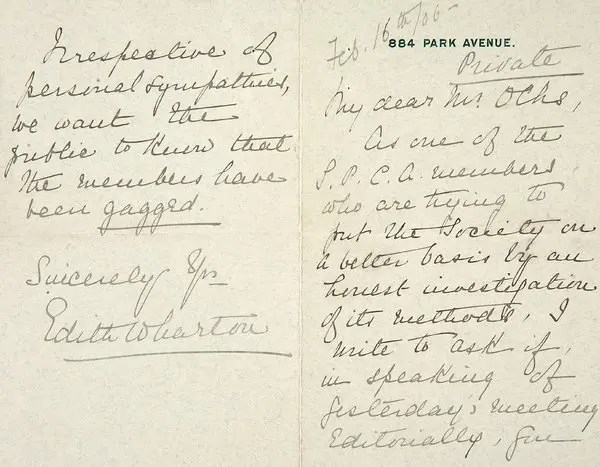 Feb. 16th/05
884 PARK AVENUE.
Private
My dear Mr. Ochs,
As one of the
S. P. C. A. members
who are trying to
put the Society on
a better basis by an
honest investigation
of its methods, I
write to ask if,
in speaking of
yesterday's meeting
Editorially, you
Irrespective of
personal sympathies,
we want the
public to know that
the members have
been gagged.
Sincerely Yrs
Edith Wharton